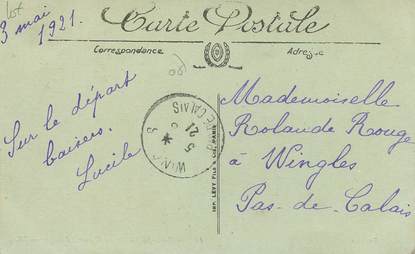 Carte Postale
Correspondance
Adresse
3 mai
1921.
Sur le départ
baisers.
Lucile
Mademoiselle
Rolande Rouge
à Wingles
Pas-de-Calais
WINGLES
PAS DE CALAIS
5
21
IMP. LÉVY FILS & CIE, PARIS